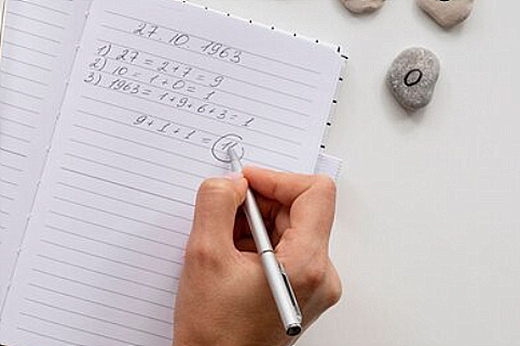 27. 10. 1963
1) 27 = 2+7 = 9
2) 10 = 1+0 = 1
3) 1963 = 1+9+6+3 = 1
9+1+1 = 11
0